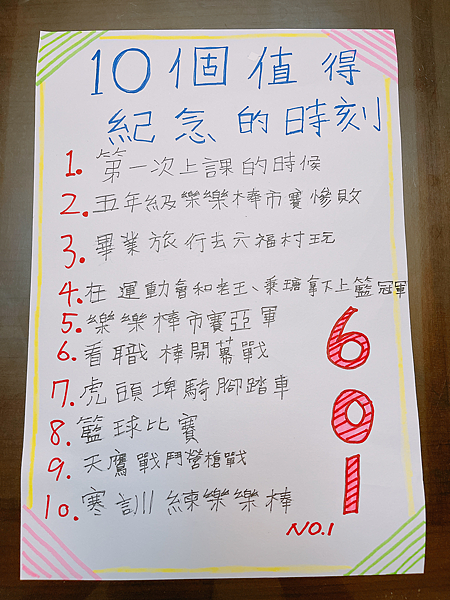 10個值得
紀念的時刻
1. 第一次上課的時候
2. 五年級樂樂棒市賽慘敗
3. 畢業旅行去六福村玩
4. 在運動會和老王、秉瑭拿下上籃冠軍
5. 樂樂棒市賽亞軍
6. 看職棒開幕戰
7. 虎頭埤騎腳踏車
8. 籃球比賽
9. 天鷹戰鬥營槍戰
10. 寒訓練樂樂棒
601
NO.1